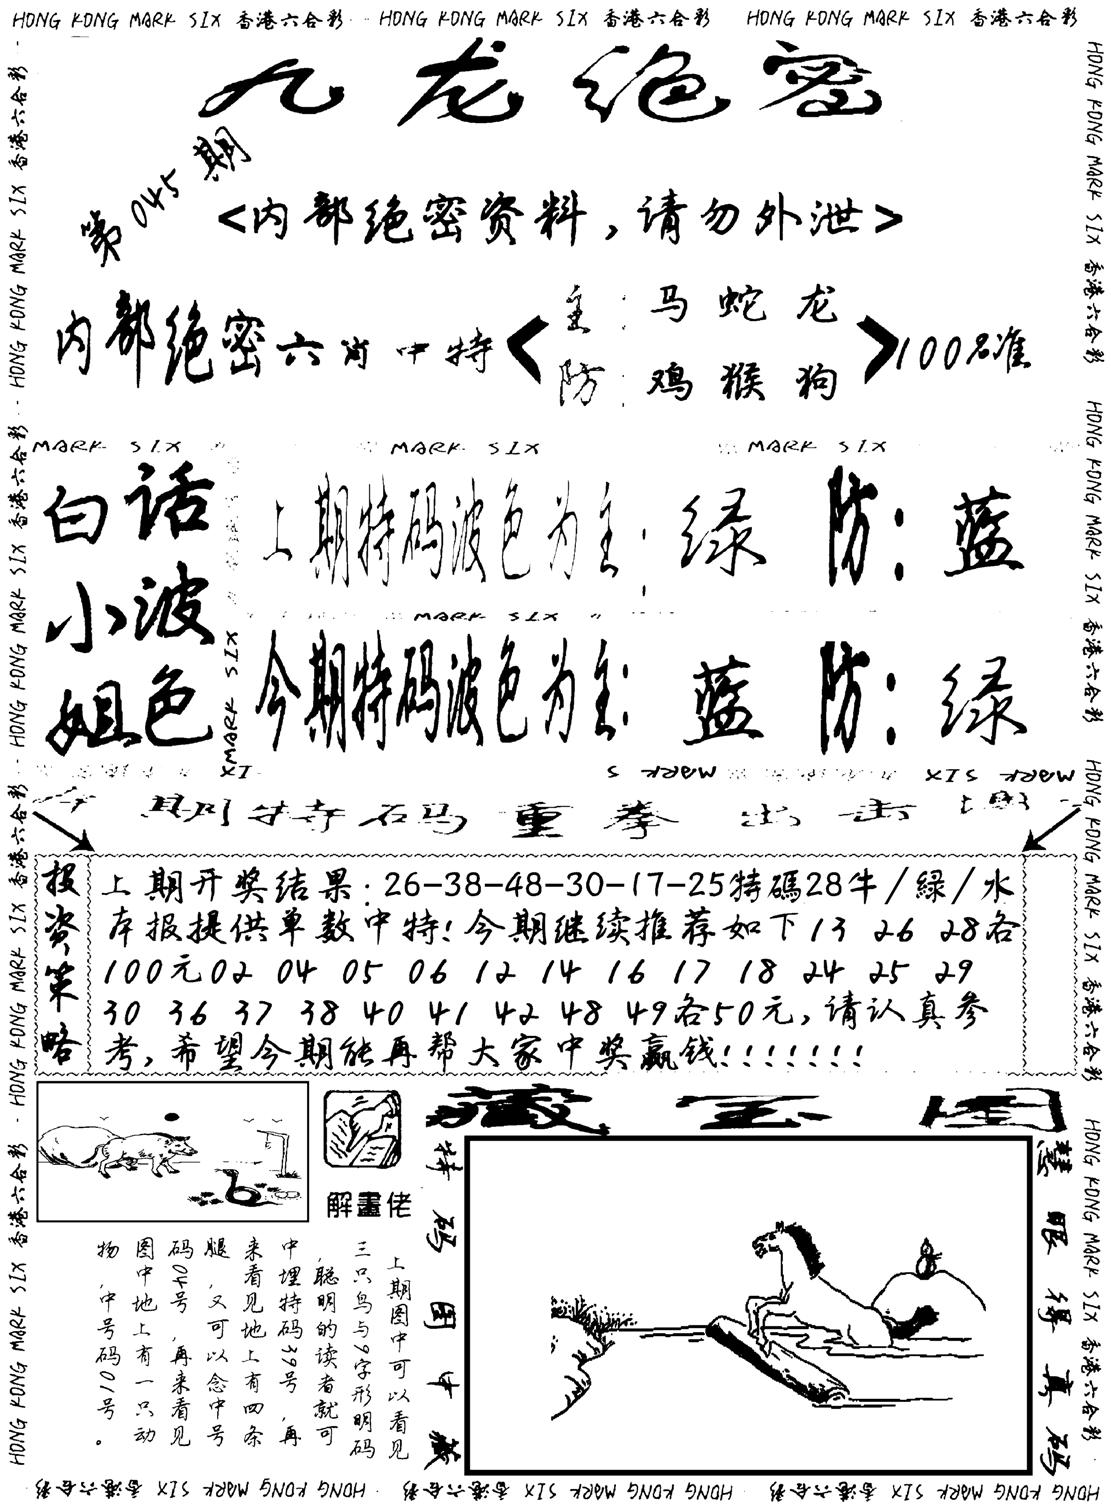 HONG KONG MARK SIX 香港六合彩 HONG KONG MARK SIX 香港六合彩 HONG KONG MARK SIX 香港六合彩
九龙绝密
第045期
<内部绝密资料,请勿外泄>
内部绝密六肖中特
主:马蛇龙
防:鸡猴狗
100%准
MARK SIX MARK SIX MARK SIX
白话
小波
姐色
上期特码波色为主:绿 防:蓝
MARK SIX
今期特码波色为主:蓝 防:绿
MARK SIX
期特码重拳出击
投资策略
上期开奖结果:26-38-48-30-17-25特碼28牛/緑/水
本报提供单数中特!今期继续推荐如下13 26 28各
100元02 04 05 06 12 14 16 17 18 24 25 29
30 36 37 38 40 41 42 48 49各50元,请认真参
考,希望今期能再帮大家中奖赢钱!!!!!!!
解畫佬
上期图中可以看见
三只鸟与9字形明码
,聪明的读者就可
中埋特码39号,再
来看见地上有四条
腿,又可以念中号
码04号,再来看见
图中地上有一只动
物,中号码01号。
藏宝图
特码图中藏
慧眼得真码
HONG KONG MARK SIX 香港六合彩 HONG KONG MARK SIX 香港六合彩 HONG KONG MARK SIX 香港六合彩